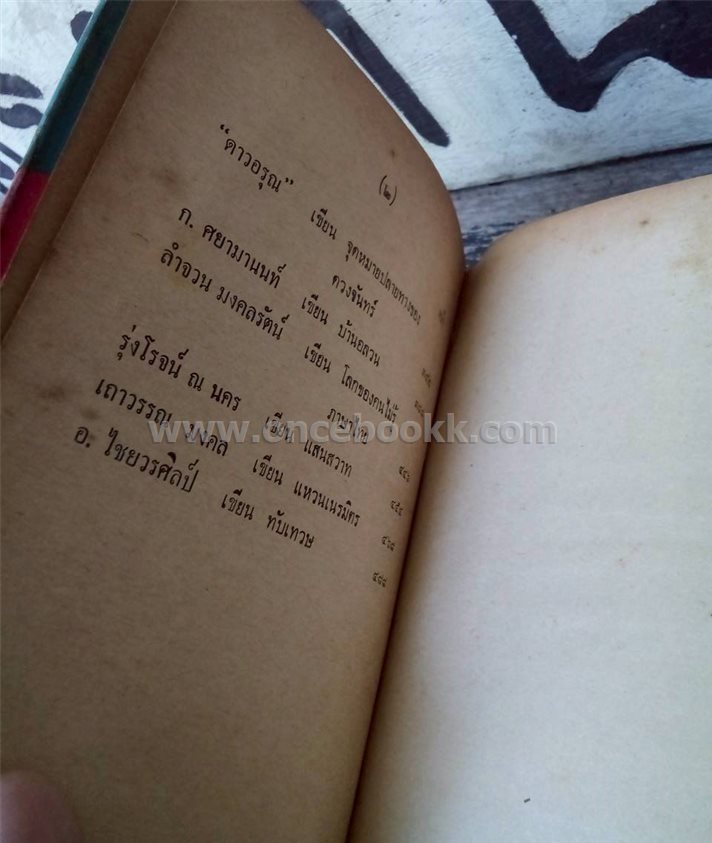 (๒)
“ดาวอรุณ” เขียน จุดหมายปลายทางของ
ดวงจันทร์
ก. ศยามานนท์ เขียน บ้านอลวน
ลำจวน มงคลรัตน์ เขียน โลกของคนไม่รู้
ภาษาไทย
รุ่งโรจน์ ณ นคร เขียน แสนสวาท ๔๔๖
เถาวรรณ มงคล เขียน แหวนเนรมิตร ๔๕๔
อ. ไชยวรศิลป์ เขียน ทับเทวษ ๔๖๘
๔๘๘
www.oncebookk.com